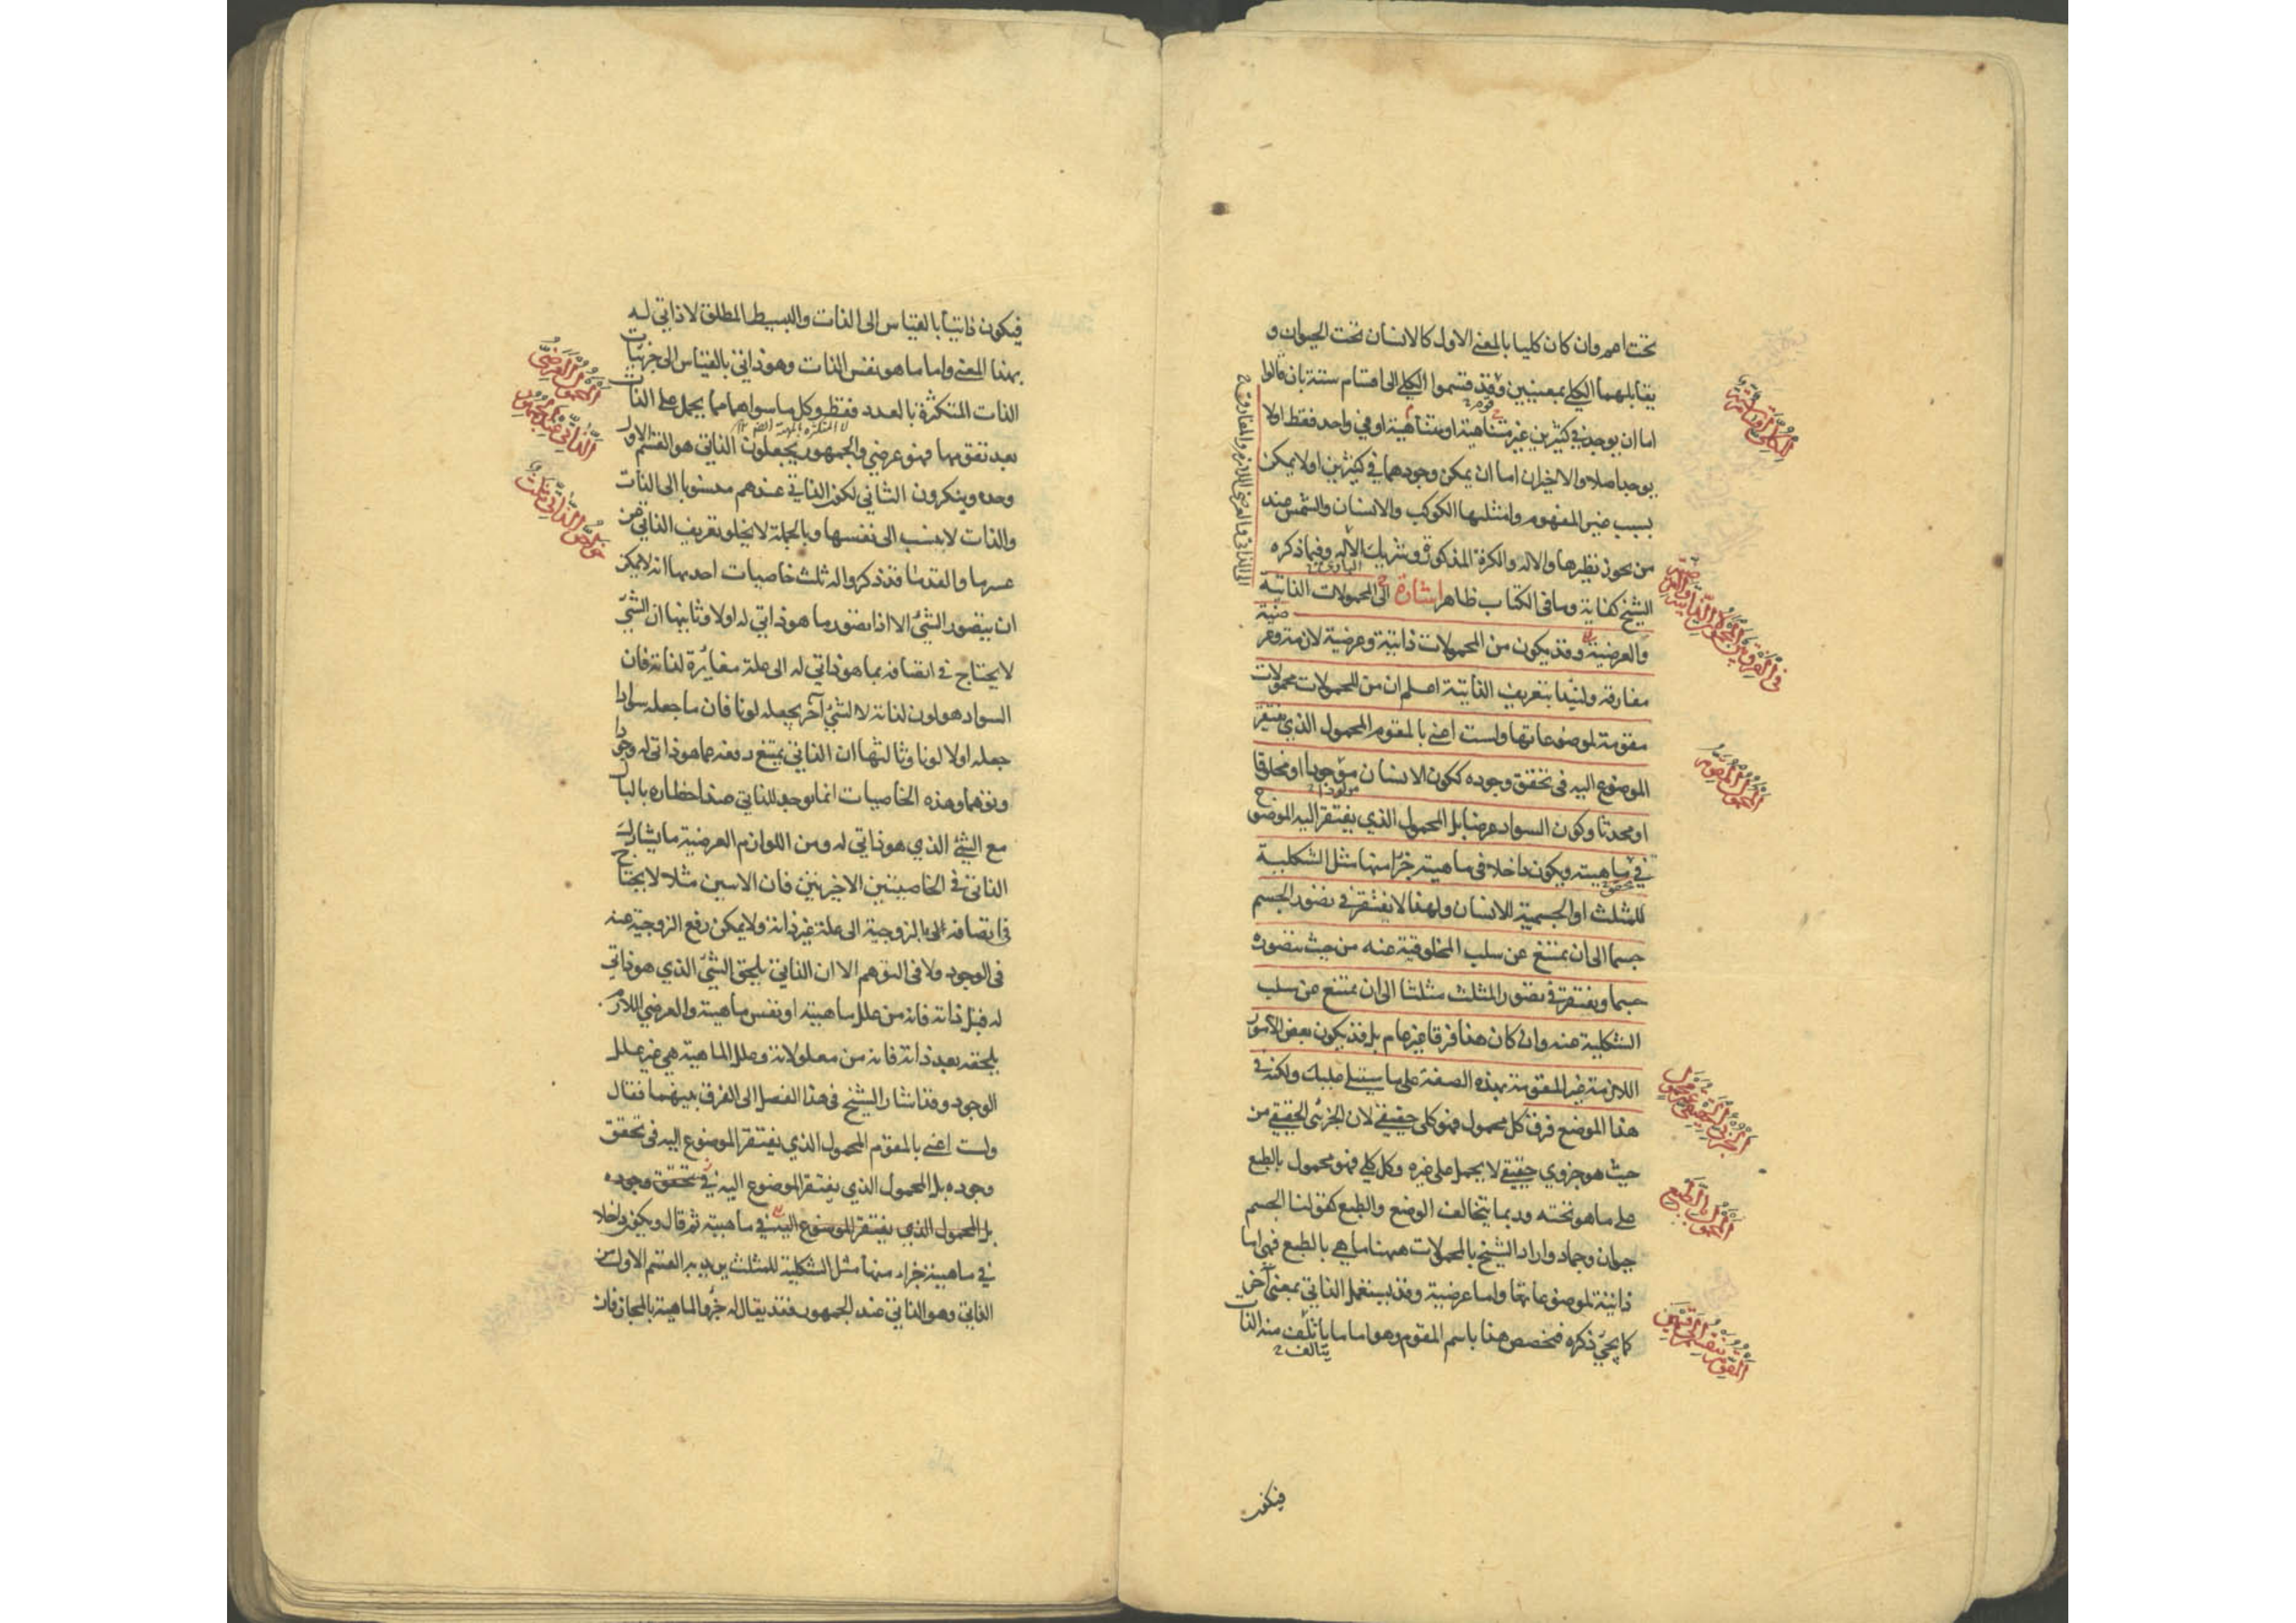 تحت اعم وان كان كليا بالمعنى الاول كالانسان تحت الحيوان و
يقابلهما الكلي بمعنيين وقد قسموا الكلي الى اقسام ستة بان قالوا
قوم
اما ان يوجد في كثيرين غير متناهية او متناهية او في واحد فقط او لا
يوجد اصلا والاخيران اما ان يمكن وجودهما في كثيرين او لا يمكن
بسبب غير المفهوم وامثلتها الكوكب والانسان والشمس عند
من يجوز نظيرها والاله والكرة المذكورة وشريك الاله وفيما ذكره
الباري
الشيخ كفاية وما في الكتاب ظاهر اشارة الى المحمولات الذاتية
والعرضية وقد يكون من المحمولات ذاتية وعرضية لازمة وعر
ضية
مفارقة ولنبدا بتعريف الذاتية اعلم ان من المحمولات محمولات
مقومة لموضوعاتها ولست اعني بالمقوم المحمول الذي يفتقر
الموضوع اليه في تحقق وجوده ككون الانسان موجودا او مخلوقا
مولودا
او محدثا وكون السواد عرضا بل المحمول الذي يفتقر اليه الموضوع
في ماهيته ويكون داخلا في ماهيته جزا منها مثل الشكلية
تحقق
للمثلث او الجسمية للانسان ولهذا لا يفتقر في تصور الجسم
جسما الى ان يمتنع عن سلب المخلوقية عنه من حيث يتصوره
جسما ويفتقر في تصور المثلث مثلثا الى ان يمتنع عن سلب
الشكلية عنه وان كان هذا فرقا غير عام بل قد يكون بعض الامور
اللازمة غير المقومة بهذه الصفة على ما سيتلى عليك ولكنه في
هذا الموضع فرق كل محمول فهو كلي حقيقي لان الجزئي الحقيقي من
حيث هو جزوي حقيقي لا يحمل على غيره وكل كلي فهو محمول بالطبع
على ما هو تحته وربما يتخالف الوضع والطبع كقولنا الجسم
حيوان وجماد واراد الشيخ بالمحمولات ههنا ما هي بالطبع فهي اما
ذاتية لموضوعاتها واما عرضية وقد يستعمل الذاتي بمعنى آخر
كما يجئ ذكره فخصص هذا باسم المقوم وهو اما ما يأتلف منه الذات
يتالف
فيكون
المحمول المقوم
المحمول بالطبع
فيكون ذاتيا بالقياس الى الذات والبسيط المطلق لا ذاتي له
بهذا المعنى واما ما هو نفس الذات وهو ذاتي بالقياس الى جزئيات
الذات المتكثرة بالعدد فقط وكل ما سواهما مما يحمل على الذات
بعد تقومها فهو عرضي والجمهور يجعلون الذاتي هو القسم الاول
وحده وينكرون الثاني لكون الذاتي عندهم منسوبا الى الذات
والذات لا ينسب الى نفسها وبالجملة لا يخلو تعريف الذاتي من
عسر ما والقدما قد ذكروا له ثلث خاصيات احدها انه لا يمكن
ان يتصور الشئ الا اذا تصور ما هو ذاتي له اولا وثانيها ان الشئ
لا يحتاج في اتصافه بما هو ذاتي له الى علة مغايرة لذاته فان
السواد هو لون لذاته لا لشئ آخر يجعله لونا فان ما جعله سوادا
جعله اولا لونا وثالثها ان الذاتي يمتنع رفعه عما هو ذاتي له وجودا
وتوهما وهذه الخاصيات انما توجد للذاتي عند اخطاره بالبال
مع الشئ الذي هو ذاتي له ومن اللوازم العرضية ما يشارك
الذاتي في الخاصيتين الاخيرتين فان الاثنين مثلا لا يحتاج
في اتصافه بالزوجية الى علة غير ذاته ولا يمكن رفع الزوجية عنه
في الوجود ولا في التوهم الا ان الذاتي يلحق الشئ الذي هو ذاتي
له قبل ذاته فانه من علل ماهيته او نفس ماهيته والعرضي اللازم
يلحقه بعد ذاته فانه من معلولاته وعلل الماهية هي غير علل
الوجود وقد اشار الشيخ في هذا الفصل الى الفرق بينهما فقال
ولست اعني بالمقوم المحمول الذي يفتقر الموضوع اليه في تحقق
وجوده بل المحمول الذي يفتقر الموضوع اليه في تحقق وجوده
بل المحمول الذي يفتقر الموضوع اليه في ماهيته ثم قال ويكون داخلا
في ماهيته جزاء منها مثل الشكلية للمثلث يريد به القسم الاول من
الذاتي وهو الذاتي عند الجمهور فقد يقال له جزء الماهية بالمجاز فان
المحمول العرضي
الذاتي عند الجمهور
خواص الذاتي ثلث